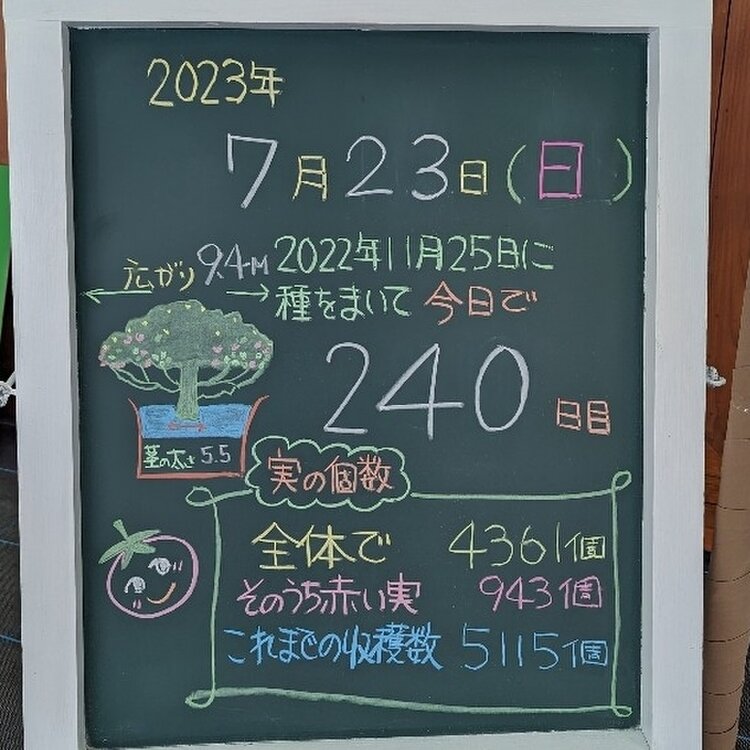 2023年
7月23日(日)
広がり 9.4M
2022年11月25日に
種をまいて 今日で
240日目
茎の太さ 5.5
実の個数
全体で 4361個
そのうち赤い実 943個
これまでの収穫数 5115個